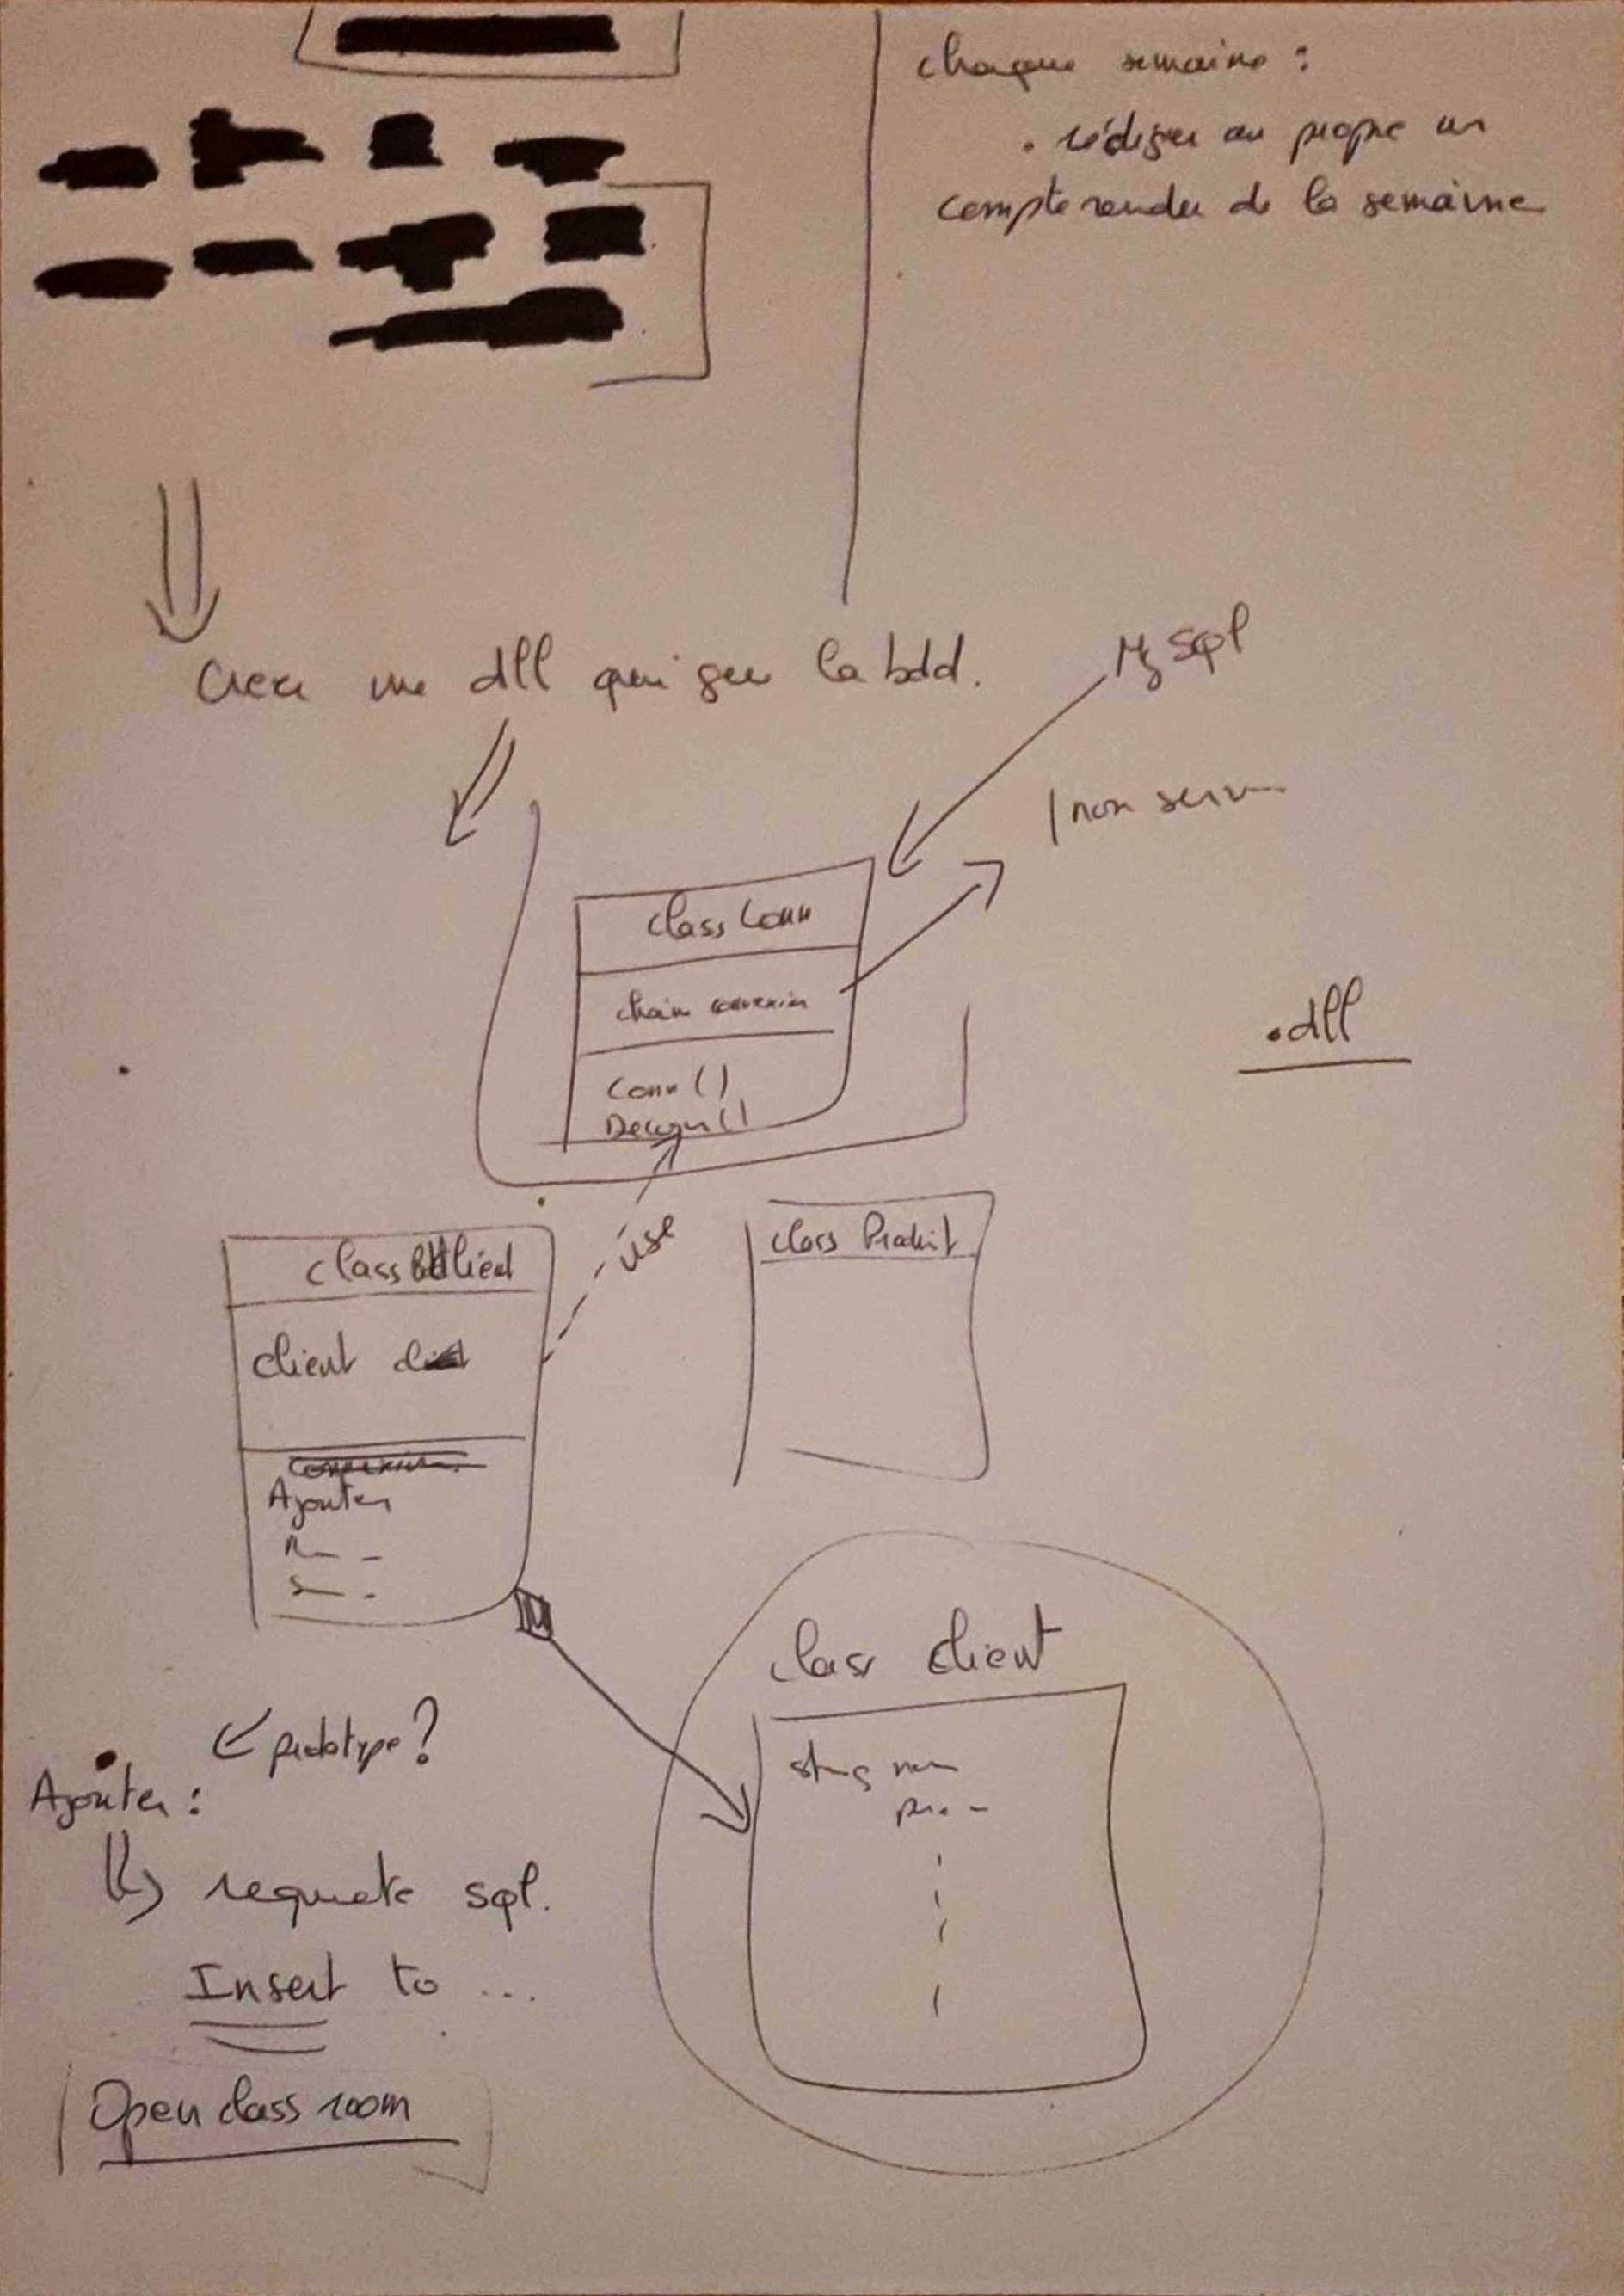 chaque semaine :
. rédiger au propre un
compte rendu de la semaine
Créer une dll qui gère la bdd.
MySql
non serv
class Conn
chain connexion
Conn ()
Decon ()
.dll
use
class Client
client
Ajouter
class Produit
class client
string nom
pre. -
← prototype ?
Ajouter :
requete sql.
Insert to ...
Open class room